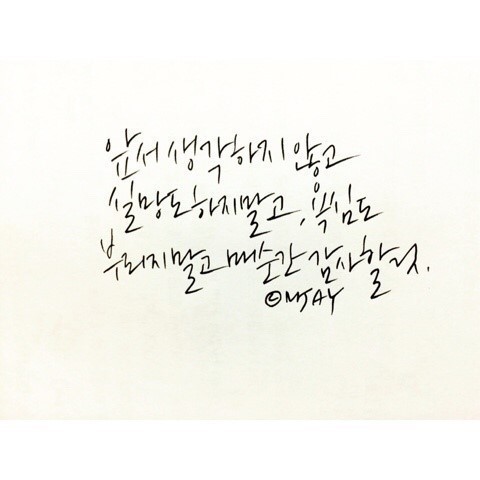 앞서 생각하지 않고
실망도 하지말고, 욕심도
부리지말고 매순간 감사할 것.
©MJAY